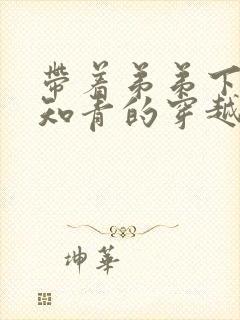 带着弟弟下
知青的穿越
坤華